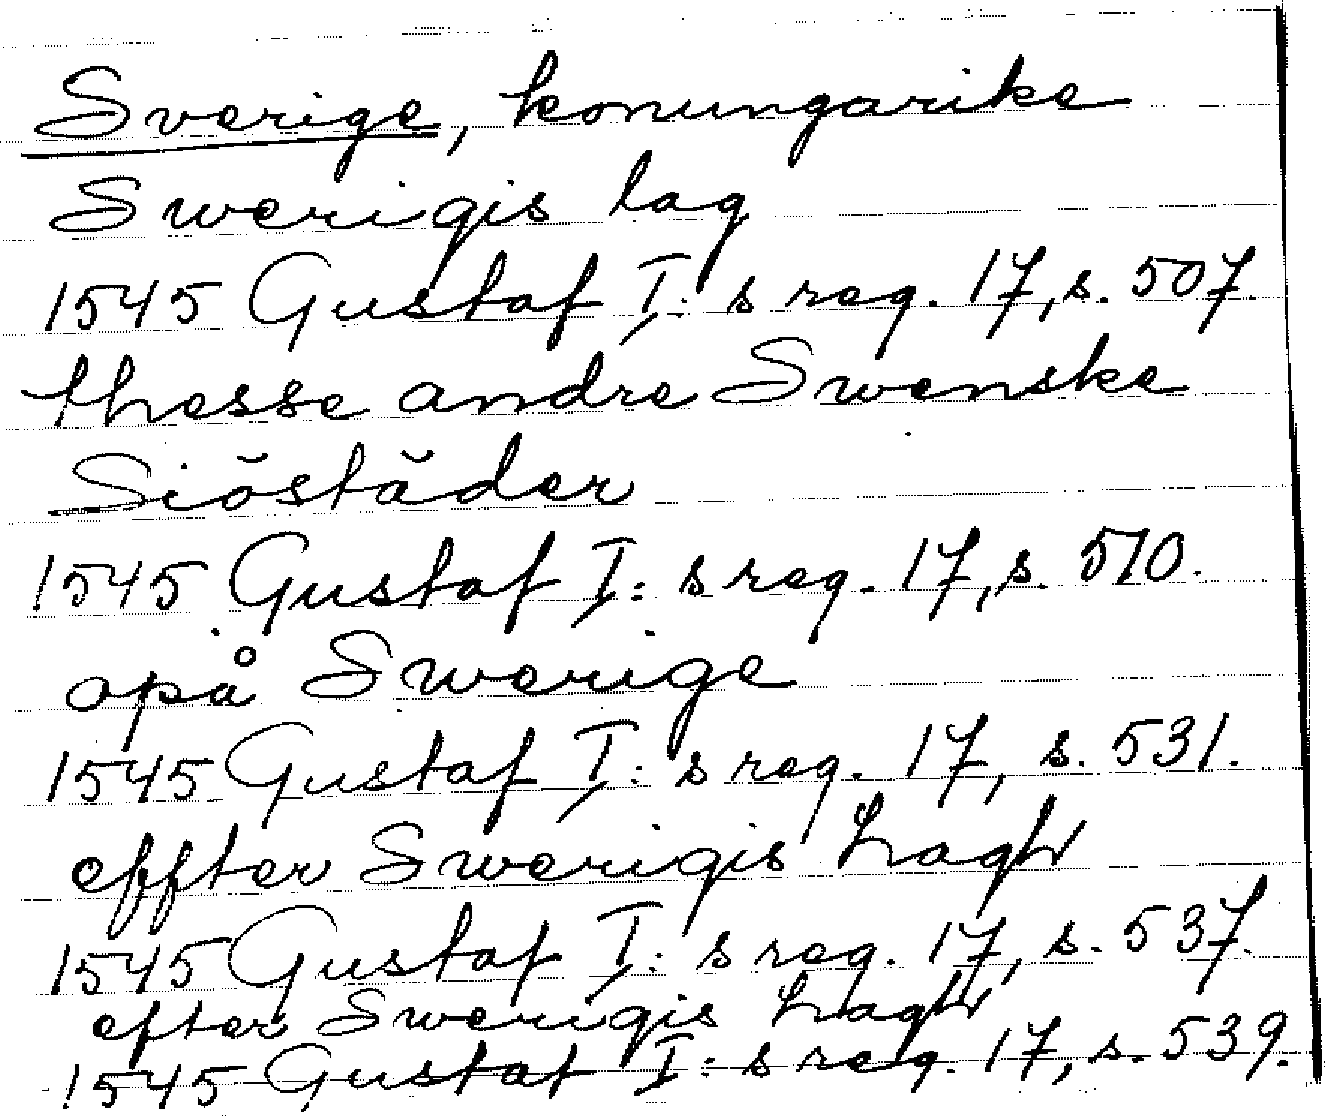 Sverige, konungarike
Swerigis lag
1545 Gustaf I: s reg. 17, s. 507.
thesse andre Swenske
Siöstäder
1545 Gustaf I: s reg. 17, s. 510.
opå Swerige
1545 Gustaf I: s reg. 17, s. 531.
effter Swerigis Lagh
1545 Gustaf I: s reg. 17, s. 537.
efter Swerigis Lagh
1545 Gustaf I: s reg. 17, s. 539.